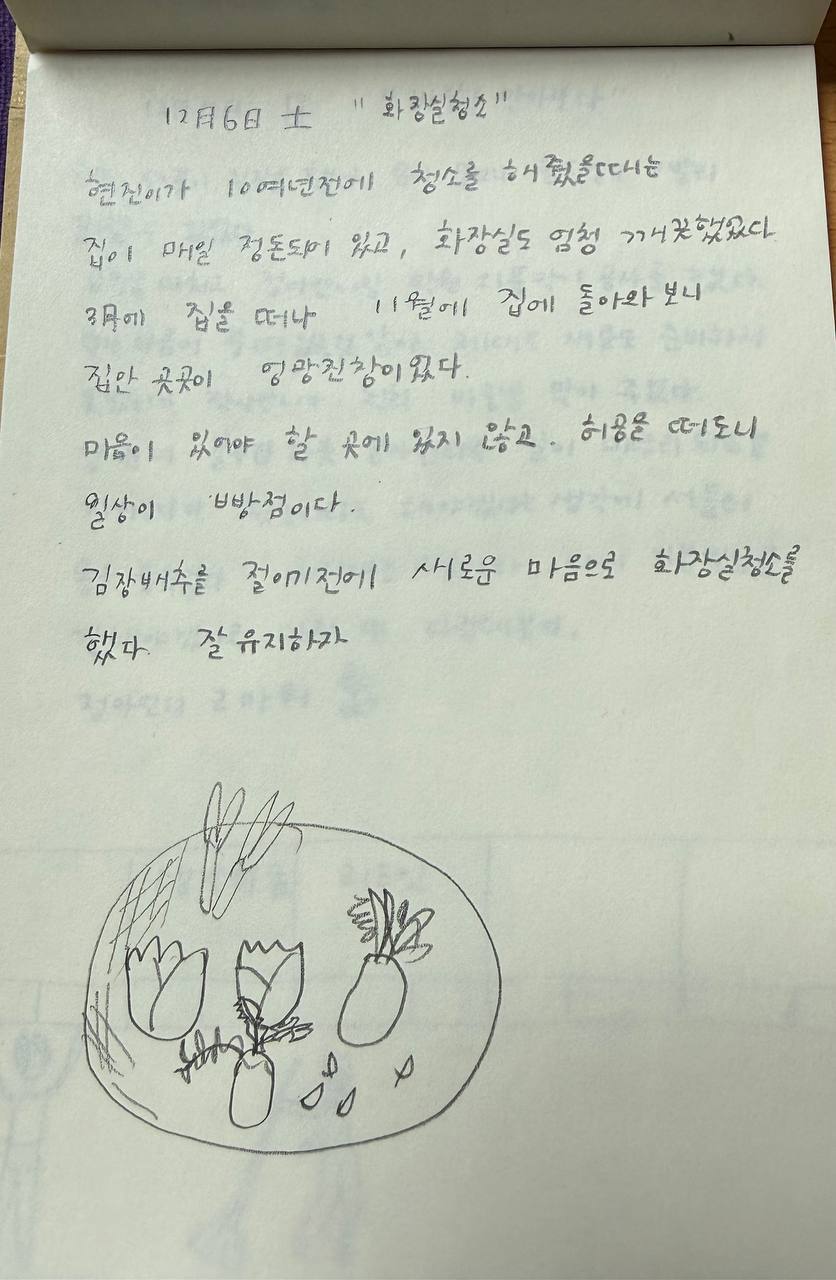 12月6日 土 " 화장실청소"
현진이가 10여년전에 청소를 해줬을때는
집이 매일 정돈되어 있고, 화장실도 엄청 깨끗했었다
3월에 집을 떠나 11월에 집에 돌아와 보니
집안 곳곳이 엉망진창이었다.
마음이 있어야 할 곳에 있지 않고. 허공을 떠도니
일상이 빵점이다.
김장배추를 절이기전에 새로운 마음으로 화장실청소를
했다. 잘 유지하자